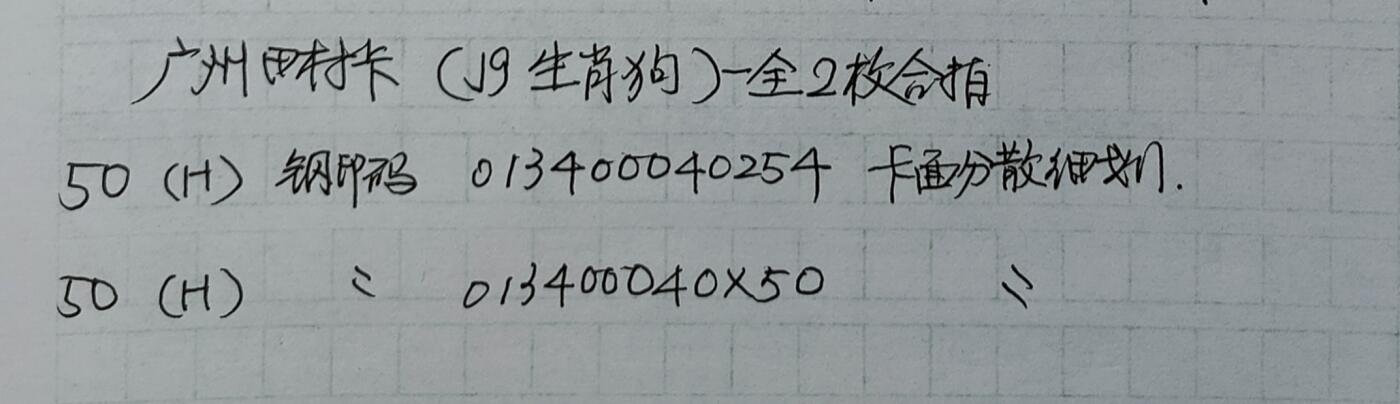 广州田村卡（J9生肖狗）一全2枚合拍
50（H）钢印码 013400040254 卡面分散细划.
50（H） 〃 013400040X50 〃